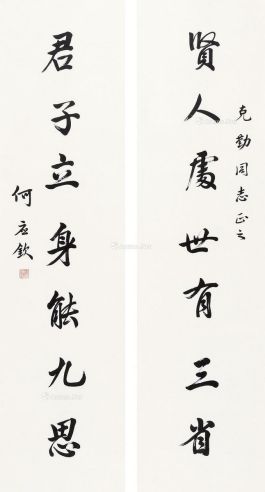 克勤同志正之
賢人處世有三省
君子立身能九思
何應欽